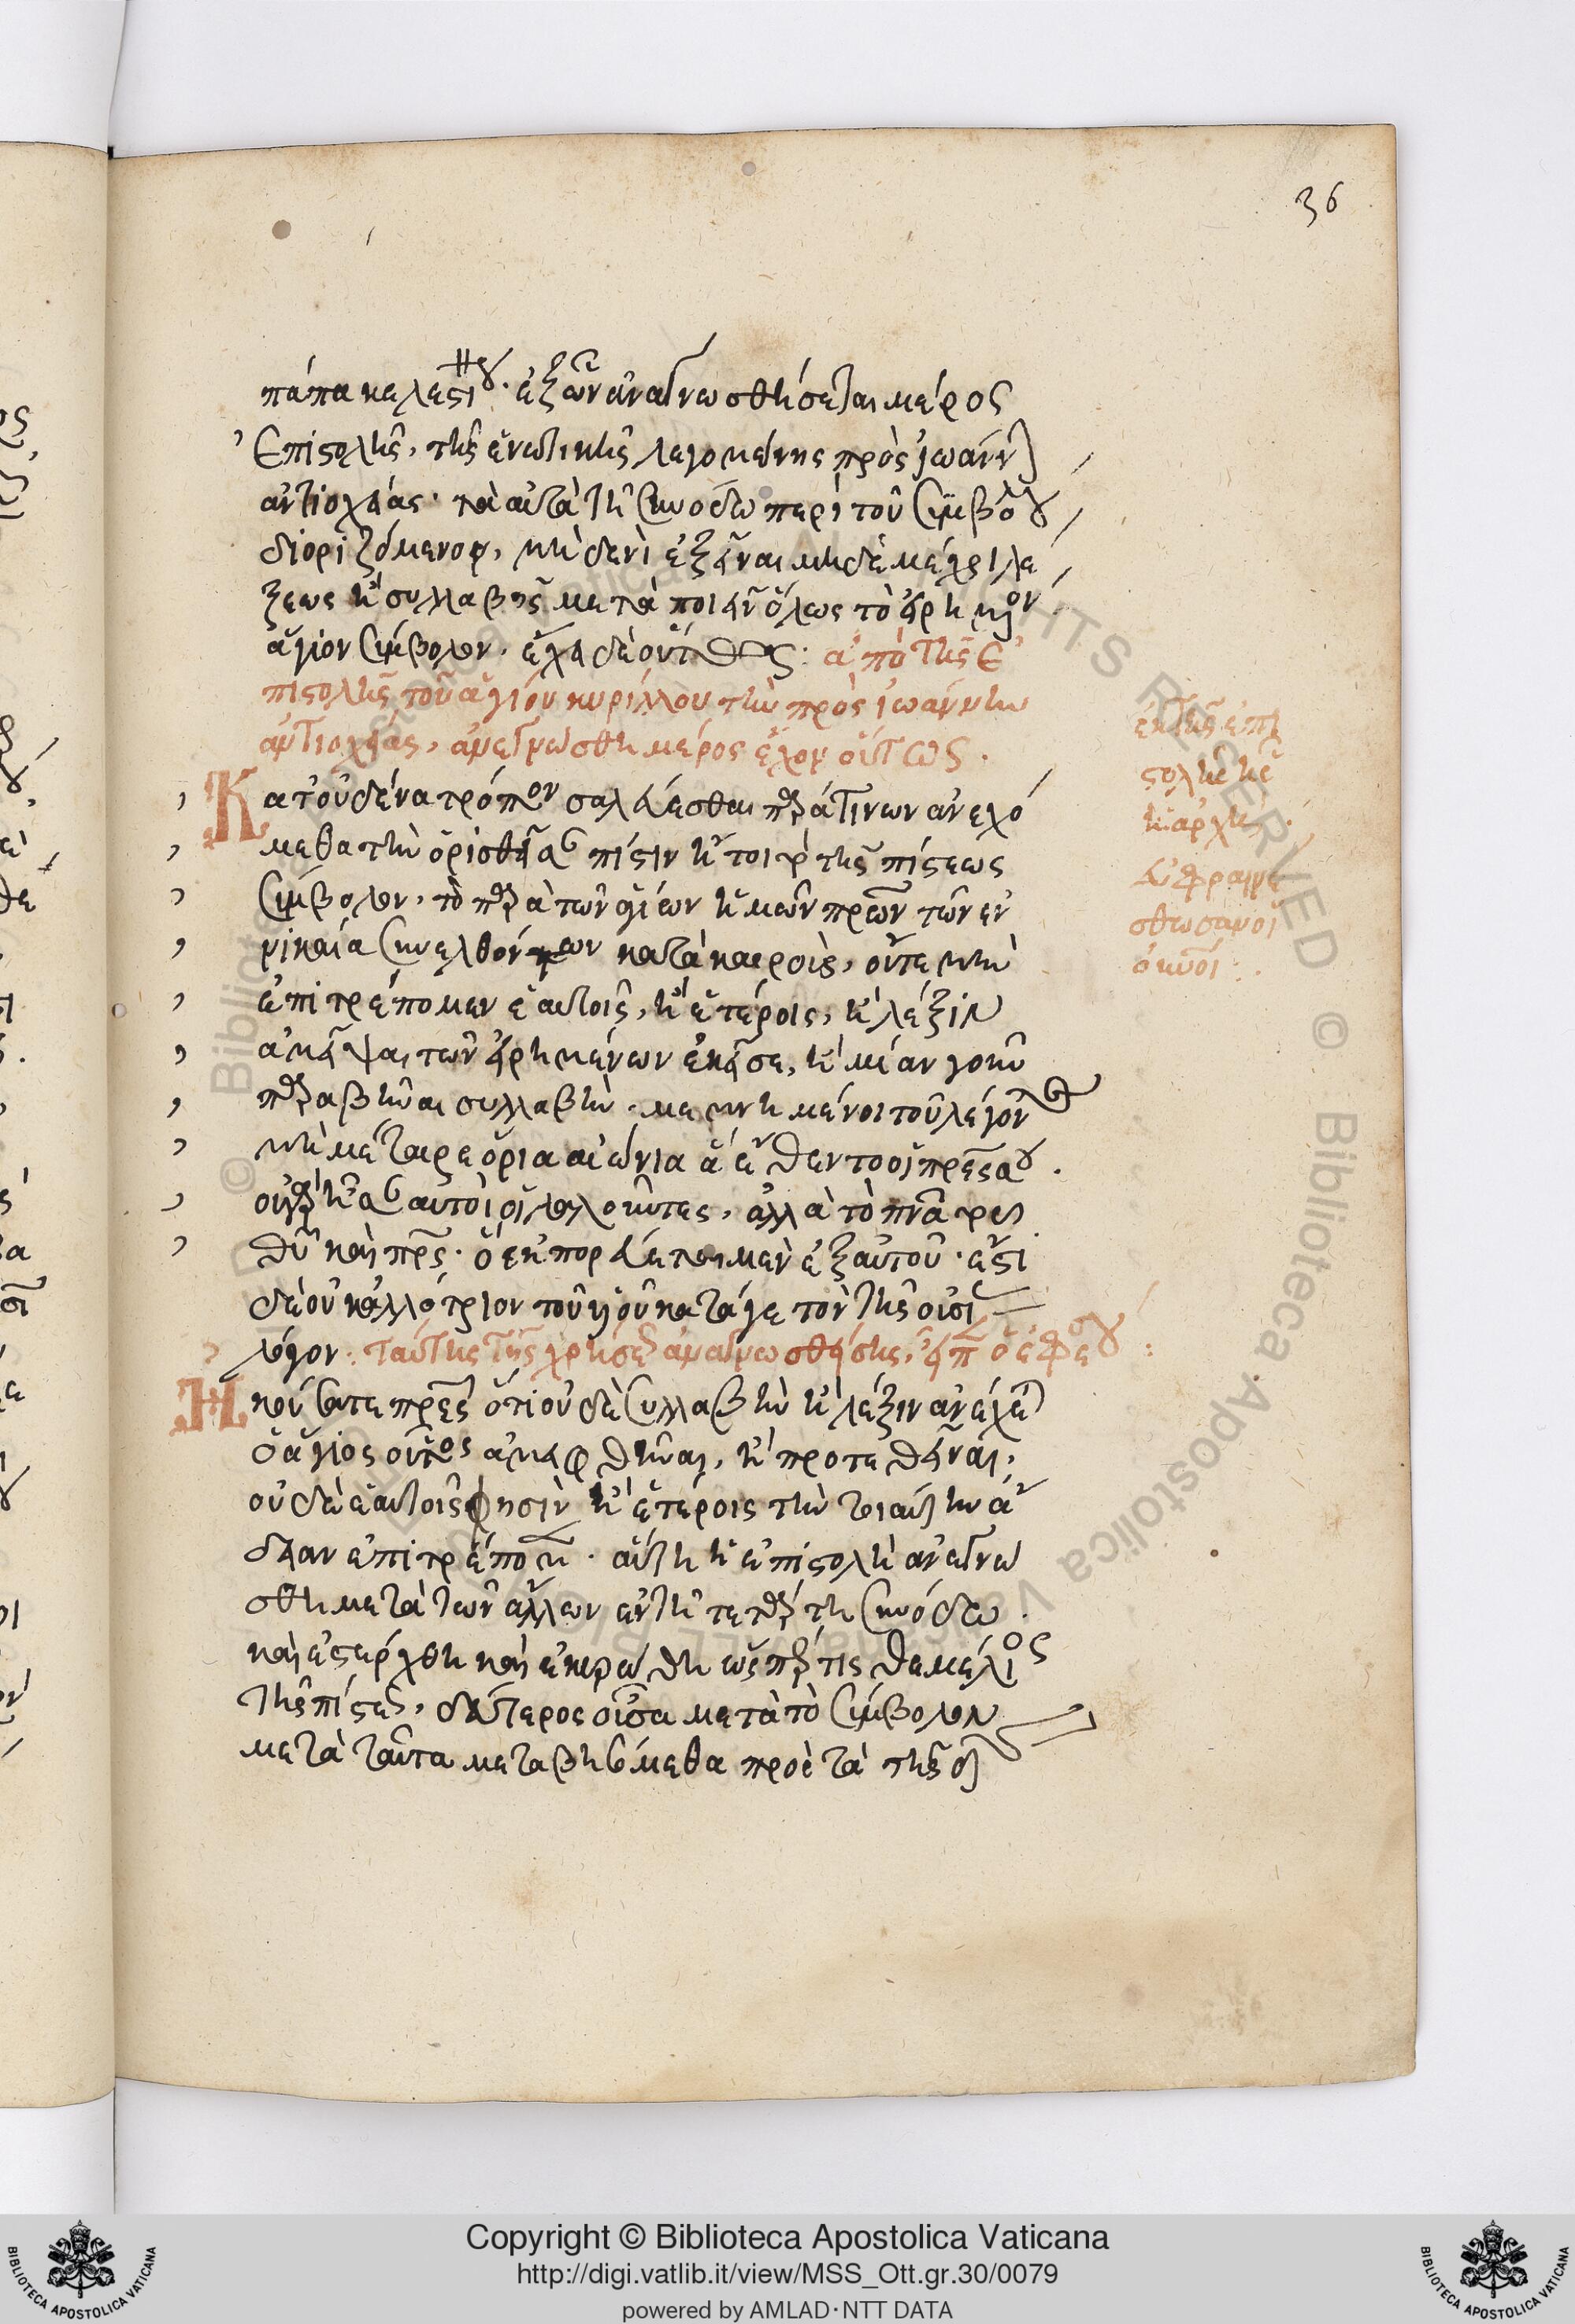 36
πάπα κελεστίνου· ἐξ ὧν ἀναγνωσθήσεται μέρος
ἐπιστολῆς, τῆς ἑνωτικῆς λεγομένης πρὸς ἰωάννην
ἀντιοχείας· τὰ αὐτὰ τῇ συνόδω περὶ τοῦ συμβόλου
διοριζόμενον, μηδενὶ ἐξεῖναι μηδὲ μέχρι λέ
ξεως ἢ συλλαβῆς μεταποιεῖν ὅλως τὸ εἰρημένον
ἅγιον σύμβολον. ἔχει δὲ οὕτως: ἀπὸ τῆς ἐ
πιστολῆς τοῦ ἁγίου κυρίλλου τὴν πρὸς ἰωάννην
ἀντιοχείας, ἀνεγνώσθη μέρος ἔχον οὕτως.
Κατ' οὐδένα τρόπον σαλεύεσθαι παρά τινων ἀνεχό
μεθα τὴν ὁρισθεῖσαν πίστιν ἤτοι τὸ τῆς πίστεως
σύμβολον, τὸ παρὰ τῶν ἁγίων ἡμῶν πρων τῶν ἐν
νικαία συνελθόντων κατὰ καιροὺς, οὔτε μὴν
ἐπιτρέπομεν ἑαυτοῖς, ἢ ἑτέροις, ἢ λέξιν
ἀμεῖψαι τῶν εἰρημένων ἐκεῖσε, ἢ μίαν γοῦν
παραβῆναι συλλαβὴν. μεμνημένοι τοῦ λέγοντος
μὴ μέταιρε ὅρια αἰώνια ἃ ἔθεντο οἱ πρες σου.
οὐ γὰρ ἦσαν αὐτοὶ οἱ λαλοῦντες, ἀλλὰ τὸ πνα τοῦ
θυ καὶ πρς. ὃ ἐκπορεύεται μὲν ἐξ αὐτοῦ· ἔστι
δὲ οὐκ ἀλλότριον τοῦ υἱοῦ κατά γε τὸν τῆς οὐσίας
λόγον: ταύτης τῆς χρήσεως ἀναγνωσθείσης, εἶπεν ὁ ἐφέσου:
Ἠκούσατε πρες ὅτι οὐδὲ συλλαβὴν ἢ λέξιν ἀνέχεται
ὁ ἅγιος οὗτος ἀμειφθῆναι, ἢ προτεθεῖναι,
οὐδὲ ἑαυτοῖς φησὶν ἢ ἑτέροις τὴν τοιαύτην ἄ
δειαν ἐπιτρέπομεν. αὕτη ἡ ἐπιστολὴ ἀνεγνώ
σθη μετὰ τῶν ἄλλων ἐν τῇ τετάρτη συνόδω.
καὶ ἐστέρχθη καὶ ἐκυρώθη ὥσπέρ τις θεμέλιος
τῆς πίστεως, δεύτερος οὖσα μετὰ τὸ σύμβολον
μετὰ ταῦτα μεταβησόμεθα πρὸς τὰ τῆς
ἐκ τῆς ἐπι
στολῆς ἧς
ἡ ἀρχὴ·
εὐφραινέ
σθωσαν οἱ
οὐνοί:
Copyright © Biblioteca Apostolica Vaticana
http://digi.vatlib.it/view/MSS_Ott.gr.30/0079
powered by AMLAD·NTT DATA
BIBLIOTECA APOSTOLICA VATICANA
BIBLIOTECA APOSTOLICA VATICANA